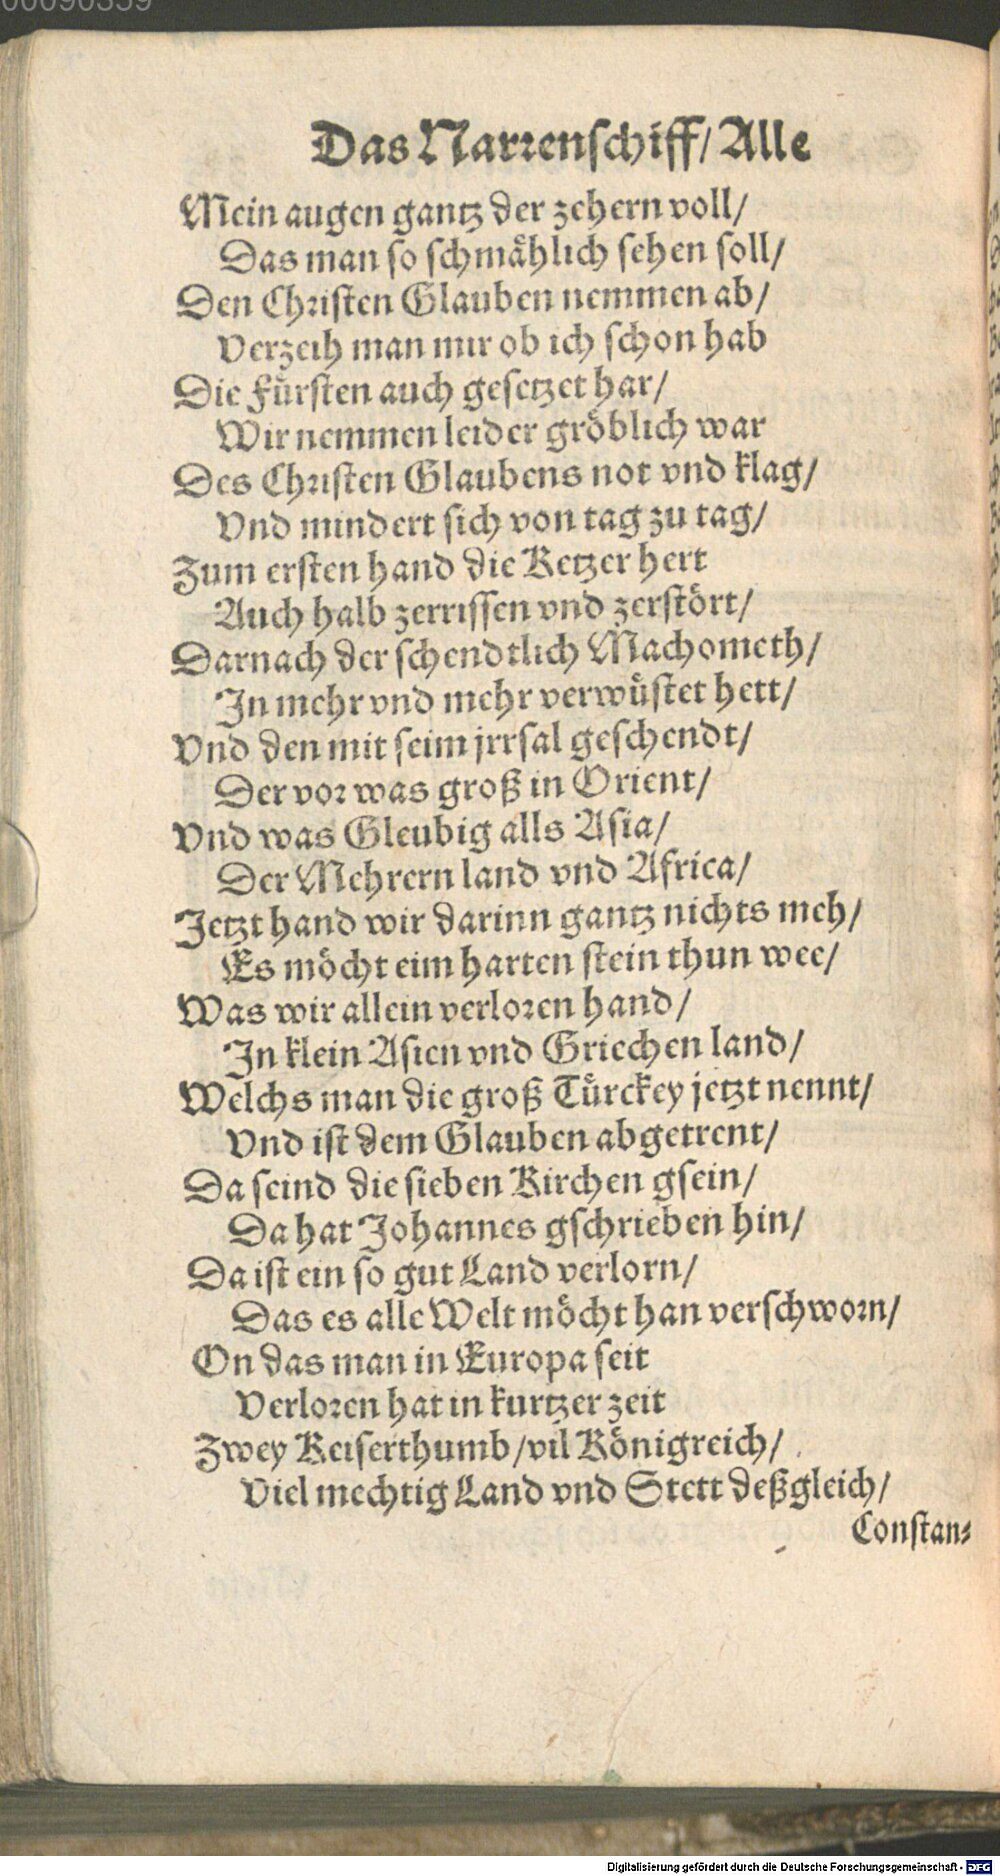 00090359
Das Narrenschiff/ Alle
Mein augen gantz der zehern voll/
Das man so schmählich sehen soll/
Den Christen Glauben nemmen ab/
Verzeih man mir ob ich schon hab
Die Fürsten auch gesetzet har/
Wir nemmen leider gröblich war
Des Christen Glaubens not vnd klag/
Vnd mindert sich von tag zu tag/
Zum ersten hand die Ketzer hert
Auch halb zerrissen vnd zerstört/
Darnach der schendtlich Machometh/
In mehr vnd mehr verwüstet hett/
Vnd den mit seim jrrsal geschendt/
Der vor was groß in Orient/
Vnd was Gleubig alls Asia/
Der Mehrern land vnd Africa/
Jetzt hand wir darinn gantz nichts meh/
Es möcht eim harten stein thun wee/
Was wir allein verloren hand/
In klein Asien vnd Griechen land/
Welchs man die groß Türckey jetzt nennt/
Vnd ist dem Glauben abgetrent/
Da seind die sieben Kirchen gsein/
Da hat Johannes gschrieben hin/
Da ist ein so gut Land verlorn/
Das es alle Welt möcht han verschworn/
On das man in Europa seit
Verloren hat in kurtzer zeit
Zwey Keiserthumb/vil Königreich/
Viel mechtig Land vnd Stett deßgleich/
Constan-
Digitalisierung gefördert durch die Deutsche Forschungsgemeinschaft - DFG